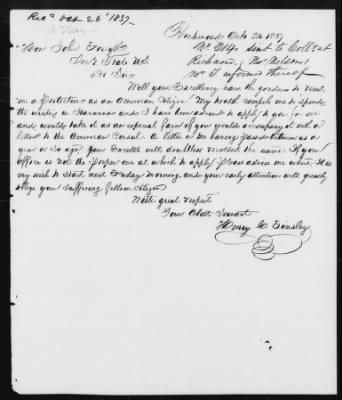 Rec^d Oct 26th 1837
Richmond Octo 24 1837
Hon John Forsyth
No. 214. sent to Coll at
Richmond, (Tho Nelson)
Mr T. informed thereof
Dr Sir
Will your Excellency have the goodness to send
me a Protection as an American Citizen. My health compels me to spend
the winter in Havanna and I have been advised to apply to you for one
and would take it as an especial favor if you would accompany it with a
letter to the American Consul. A letter of mine having passed between us a
year or so ago, your Excelly will doubtless recollect the name. If your
office is not the proper one at which to apply please advise me where. It is
my wish to start next Friday morning and your early attention will greatly
oblige your suffering fellow citizen
With great respect
Your Obdt Servant
Henry C Tinsley